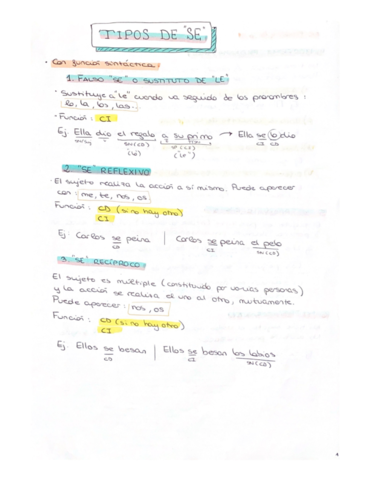 TIPOS DE "SE"
• Con función sintáctica:
1. FALSO "SE" O SUSTITUTO DE "LE"
• Sustituye a "Le" cuando va seguido de los pronombres:
lo, la, los, las.
• Función: CI
Ej Ella dio el regalo a su primo → Ella se lo dio
SN(CD) CI CD
(lo) ("Le")
2. "SE" REFLEXIVO
• El sujeto realiza la acción a sí mismo. Puede aparecer
con: me, te, nos, os
Función: CD (si no hay otro)
CI
Ej Carlos se peina | Carlos se peina el pelo
CD CI SN(CD)
3. "SE" RECÍPROCO:
El sujeto es múltiple (constituido por varias personas)
y la acción se realiza el uno al otro, mutuamente.
Puede aparecer: nos, os
Función: CD (si no hay otro)
CI
Ej Ellos se besan | Ellos se besan los labios
CD CI SN(CD)